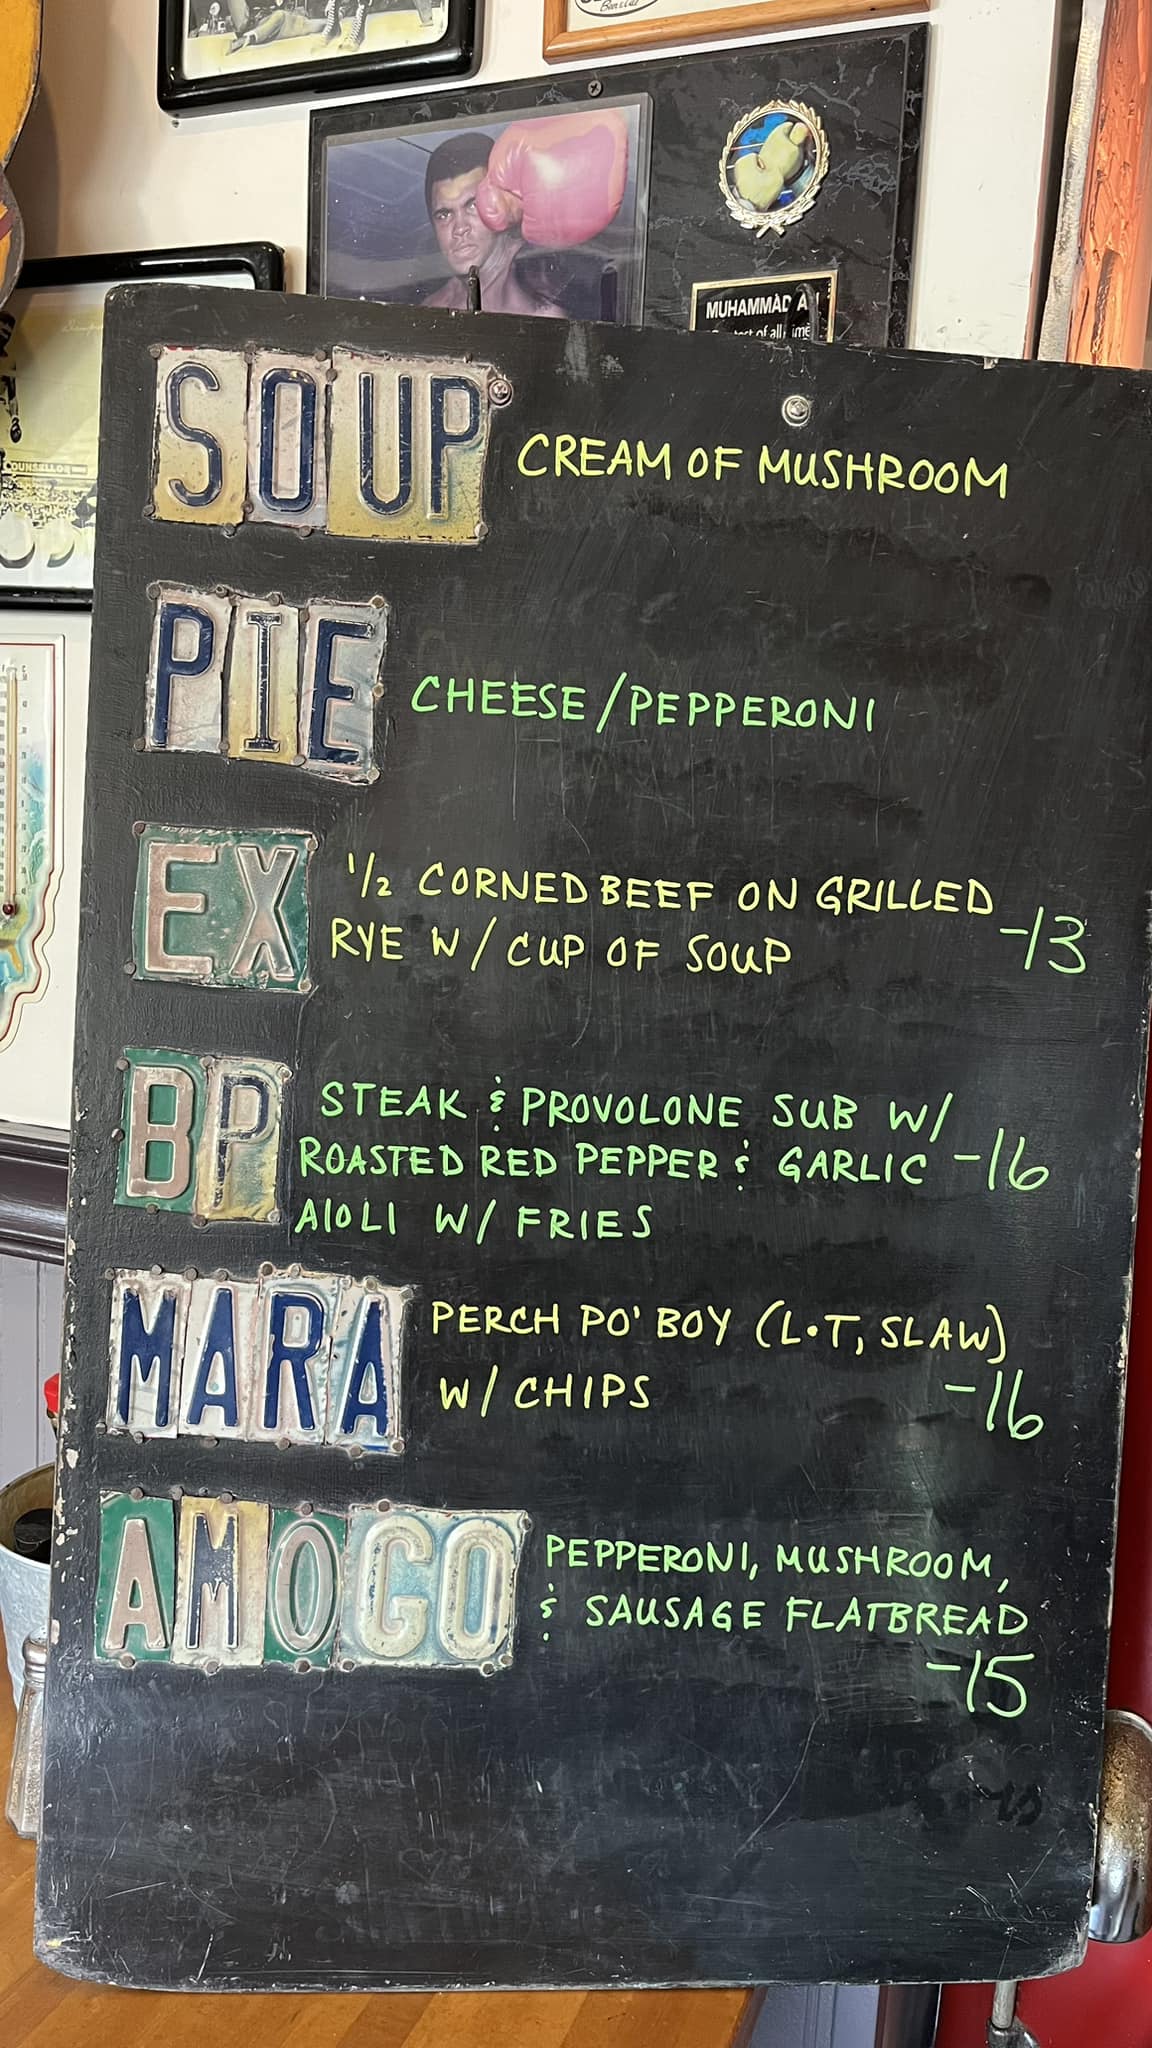 MUHAMMAD
of all time
COUNSELLOR
SOUP
CREAM OF MUSHROOM
PIE
CHEESE/PEPPERONI
EX
1/2 CORNED BEEF ON GRILLED
RYE W/ CUP OF SOUP
-13
BP
STEAK & PROVOLONE SUB W/
ROASTED RED PEPPER & GARLIC -16
AIOLI W/ FRIES
MARA
PERCH PO' BOY (L•T, SLAW)
W/ CHIPS
-16
AMOCO
PEPPERONI, MUSHROOM,
& SAUSAGE FLATBREAD
-15